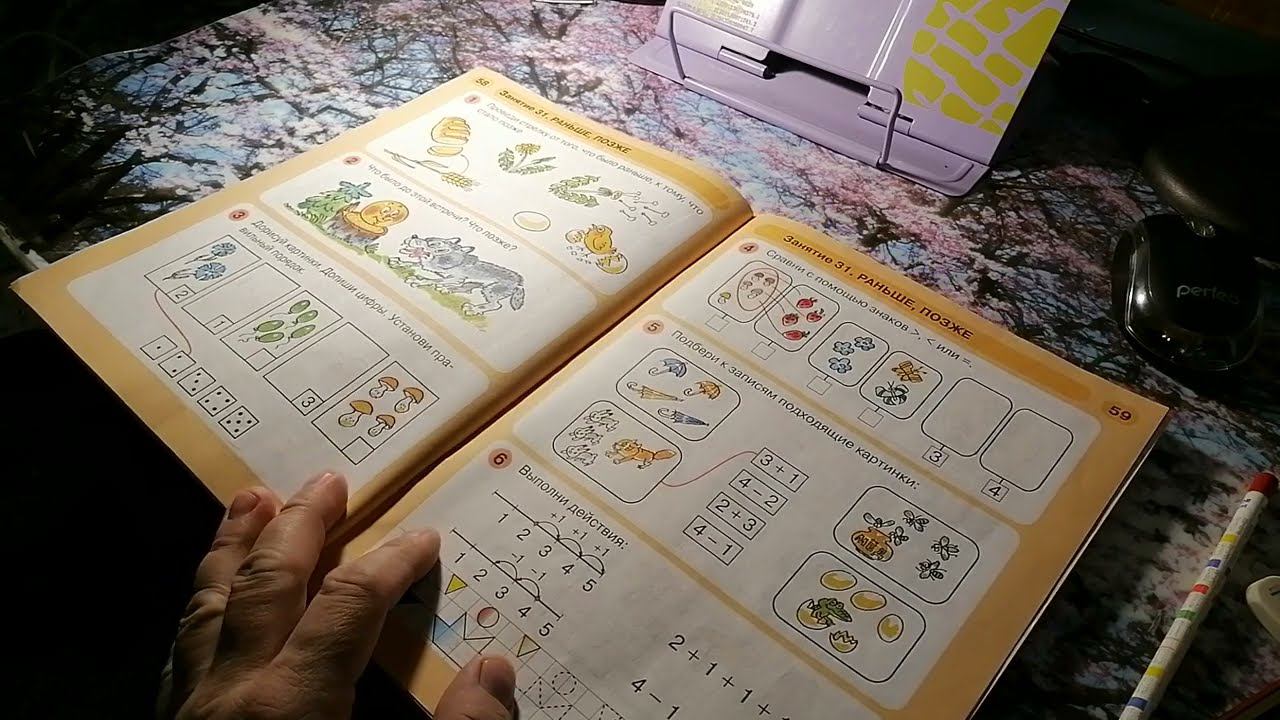 58
Занятие 31. РАНЬШЕ, ПОЗЖЕ
1 Проведи стрелку от того, что было раньше, к тому, что
стало позже
2 Что было до этой встречи? Что позже?
3 Дорисуй картинки. Допиши цифры. Установи пра-
вильный порядок.
2
1
3
Занятие 31. РАНЬШЕ, ПОЗЖЕ
59
4 Сравни с помощью знаков >, < или =.
3
4
5 Подбери к записям подходящие картинки:
3 + 1
4 − 2
2 + 3
4 − 1
6 Выполни действия:
+1 +1 +1
1 2 3 4 5
−1 −1
1 2 3 4 5
2 + 1 + 1 +
4 − 1
perfeo